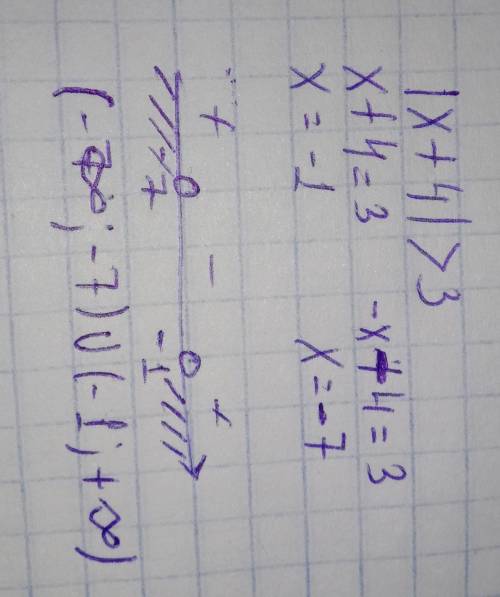 |x+4|>3
x+4=3 -x-4=3
x=-1 x=-7
+ - +
-7 -1
(-∞; -7)∪(-1; +∞)